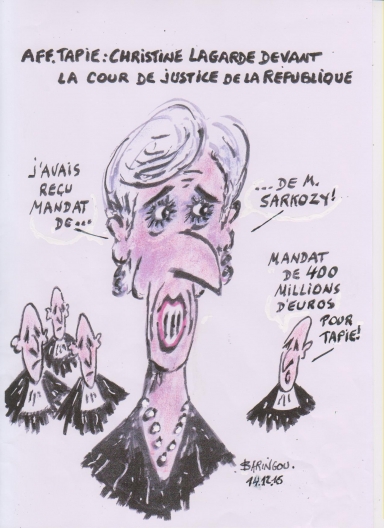 AFF. TAPIE : CHRISTINE LAGARDE DEVANT
LA COUR DE JUSTICE DE LA REPUBLIQUE
J'AVAIS
REÇU
MANDAT
DE...
...DE M.
SARKOZY!
MANDAT
DE 400
MILLIONS
D'EUROS
POUR
TAPIE!
BARINGOU.
14.12.16